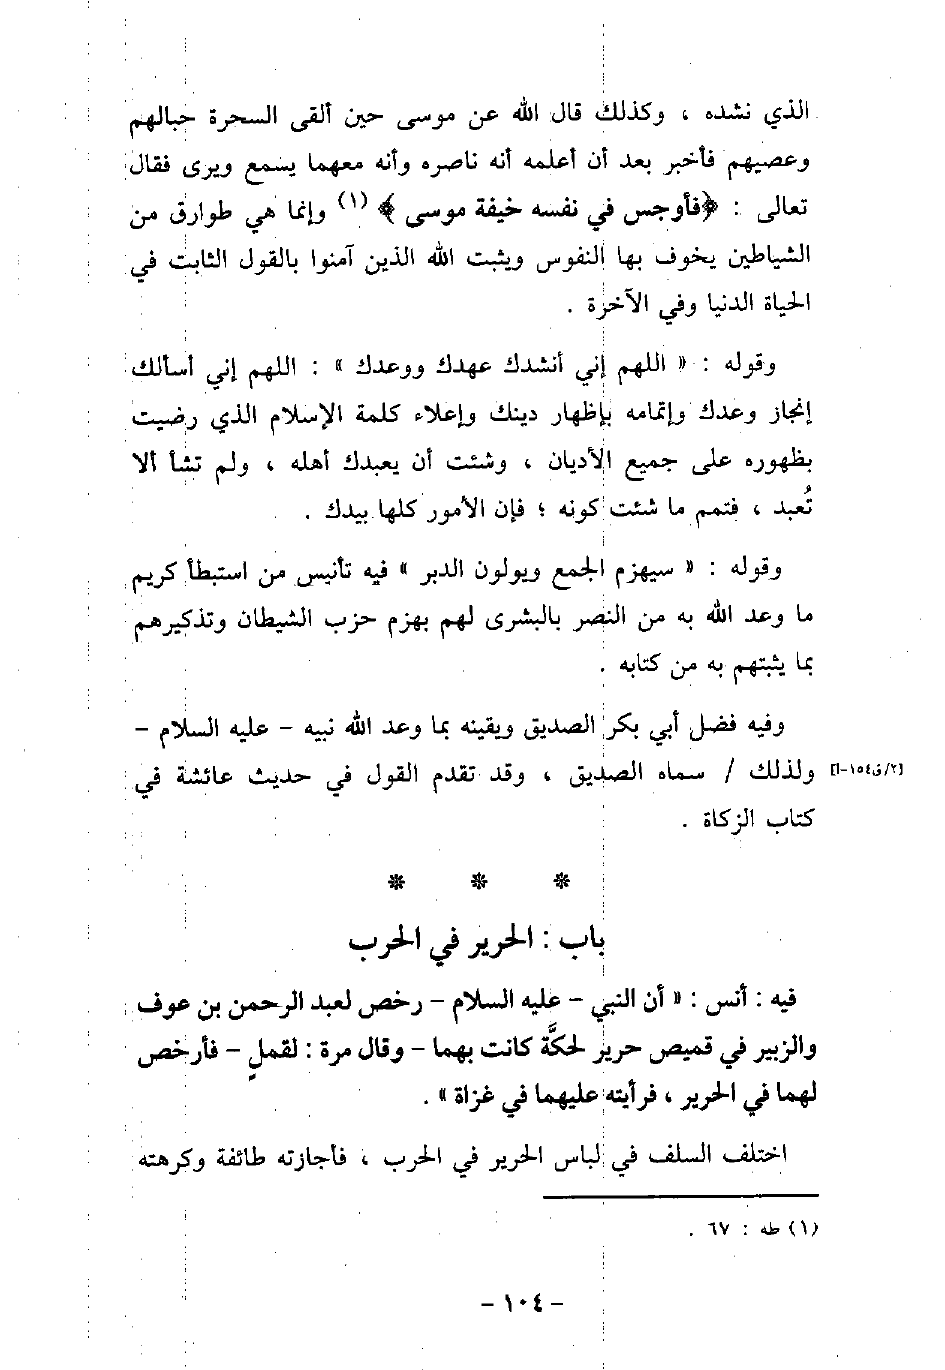 الذي نشده ، وكذلك قال الله عن موسى حين ألقى السحرة حبالهم
وعصيهم فأخبر بعد أن أعلمه أنه ناصره وأنه معهما يسمع ويرى فقال
تعالى : ﴿فأوجس في نفسه خيفة موسى ﴾ (١) وإنما هي طوارق من
الشياطين يخوف بها النفوس ويثبت الله الذين آمنوا بالقول الثابت في
الحياة الدنيا وفي الآخرة .
وقوله : « اللهم إني أنشدك عهدك ووعدك » : اللهم إني أسألك
إنجاز وعدك وإتمامه بإظهار دينك وإعلاء كلمة الإسلام الذي رضيت
بظهوره على جميع الأديان ، وشئت أن يعبدك أهله ، ولم تشأ ألا
تُعبد ، فتمم ما شئت كونه ؛ فإن الأمور كلها بيدك .
وقوله : « سيهزم الجمع ويولون الدبر » فيه تأنيس من استبطأ كريم
ما وعد الله به من النصر بالبشرى لهم بهزم حزب الشيطان وتذكيرهم
بما يثبتهم به من كتابه .
وفيه فضل أبي بكر الصديق ويقينه بما وعد الله نبيه – عليه السلام –
[٢/ق١٥٤-أ] ولذلك / سماه الصديق ، وقد تقدم القول في حديث عائشة في
كتاب الزكاة .
* * *
باب : الحرير في الحرب
فيه : أنس : « أن النبي – عليه السلام – رخص لعبد الرحمن بن عوف
والزبير في قميص حرير لحكَّة كانت بهما – وقال مرة : لقملٍ – فأرخص
لهما في الحرير ، فرأيته عليهما في غزاة » .
اختلف السلف في لباس الحرير في الحرب ، فأجازته طائفة وكرهته
(١) طه : ٦٧ .
– ١٠٤ –